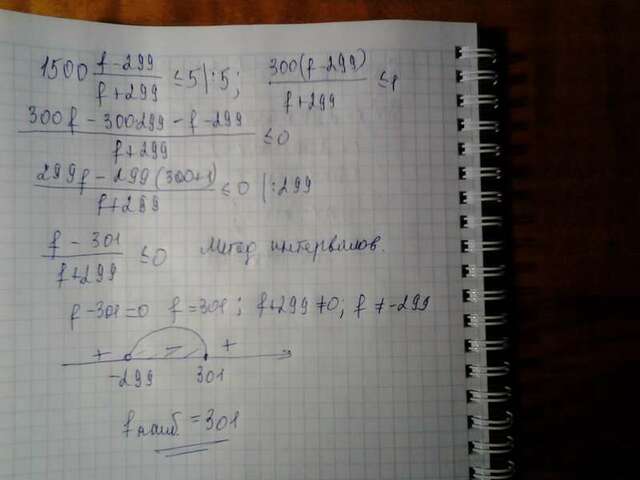 1500 (f-299)/(f+299) ≤5|:5; 300(f-299)/(f+299) ≤1
(300f - 300·299 - f - 299)/(f+299) ≤0
(299f - 299(300+1))/(f+299) ≤0 |:299
(f - 301)/(f+299) ≤0 Метод интервалов.
f-301=0 f=301; f+299≠0; f≠-299
+ - +
-299 301
fнаиб. =301